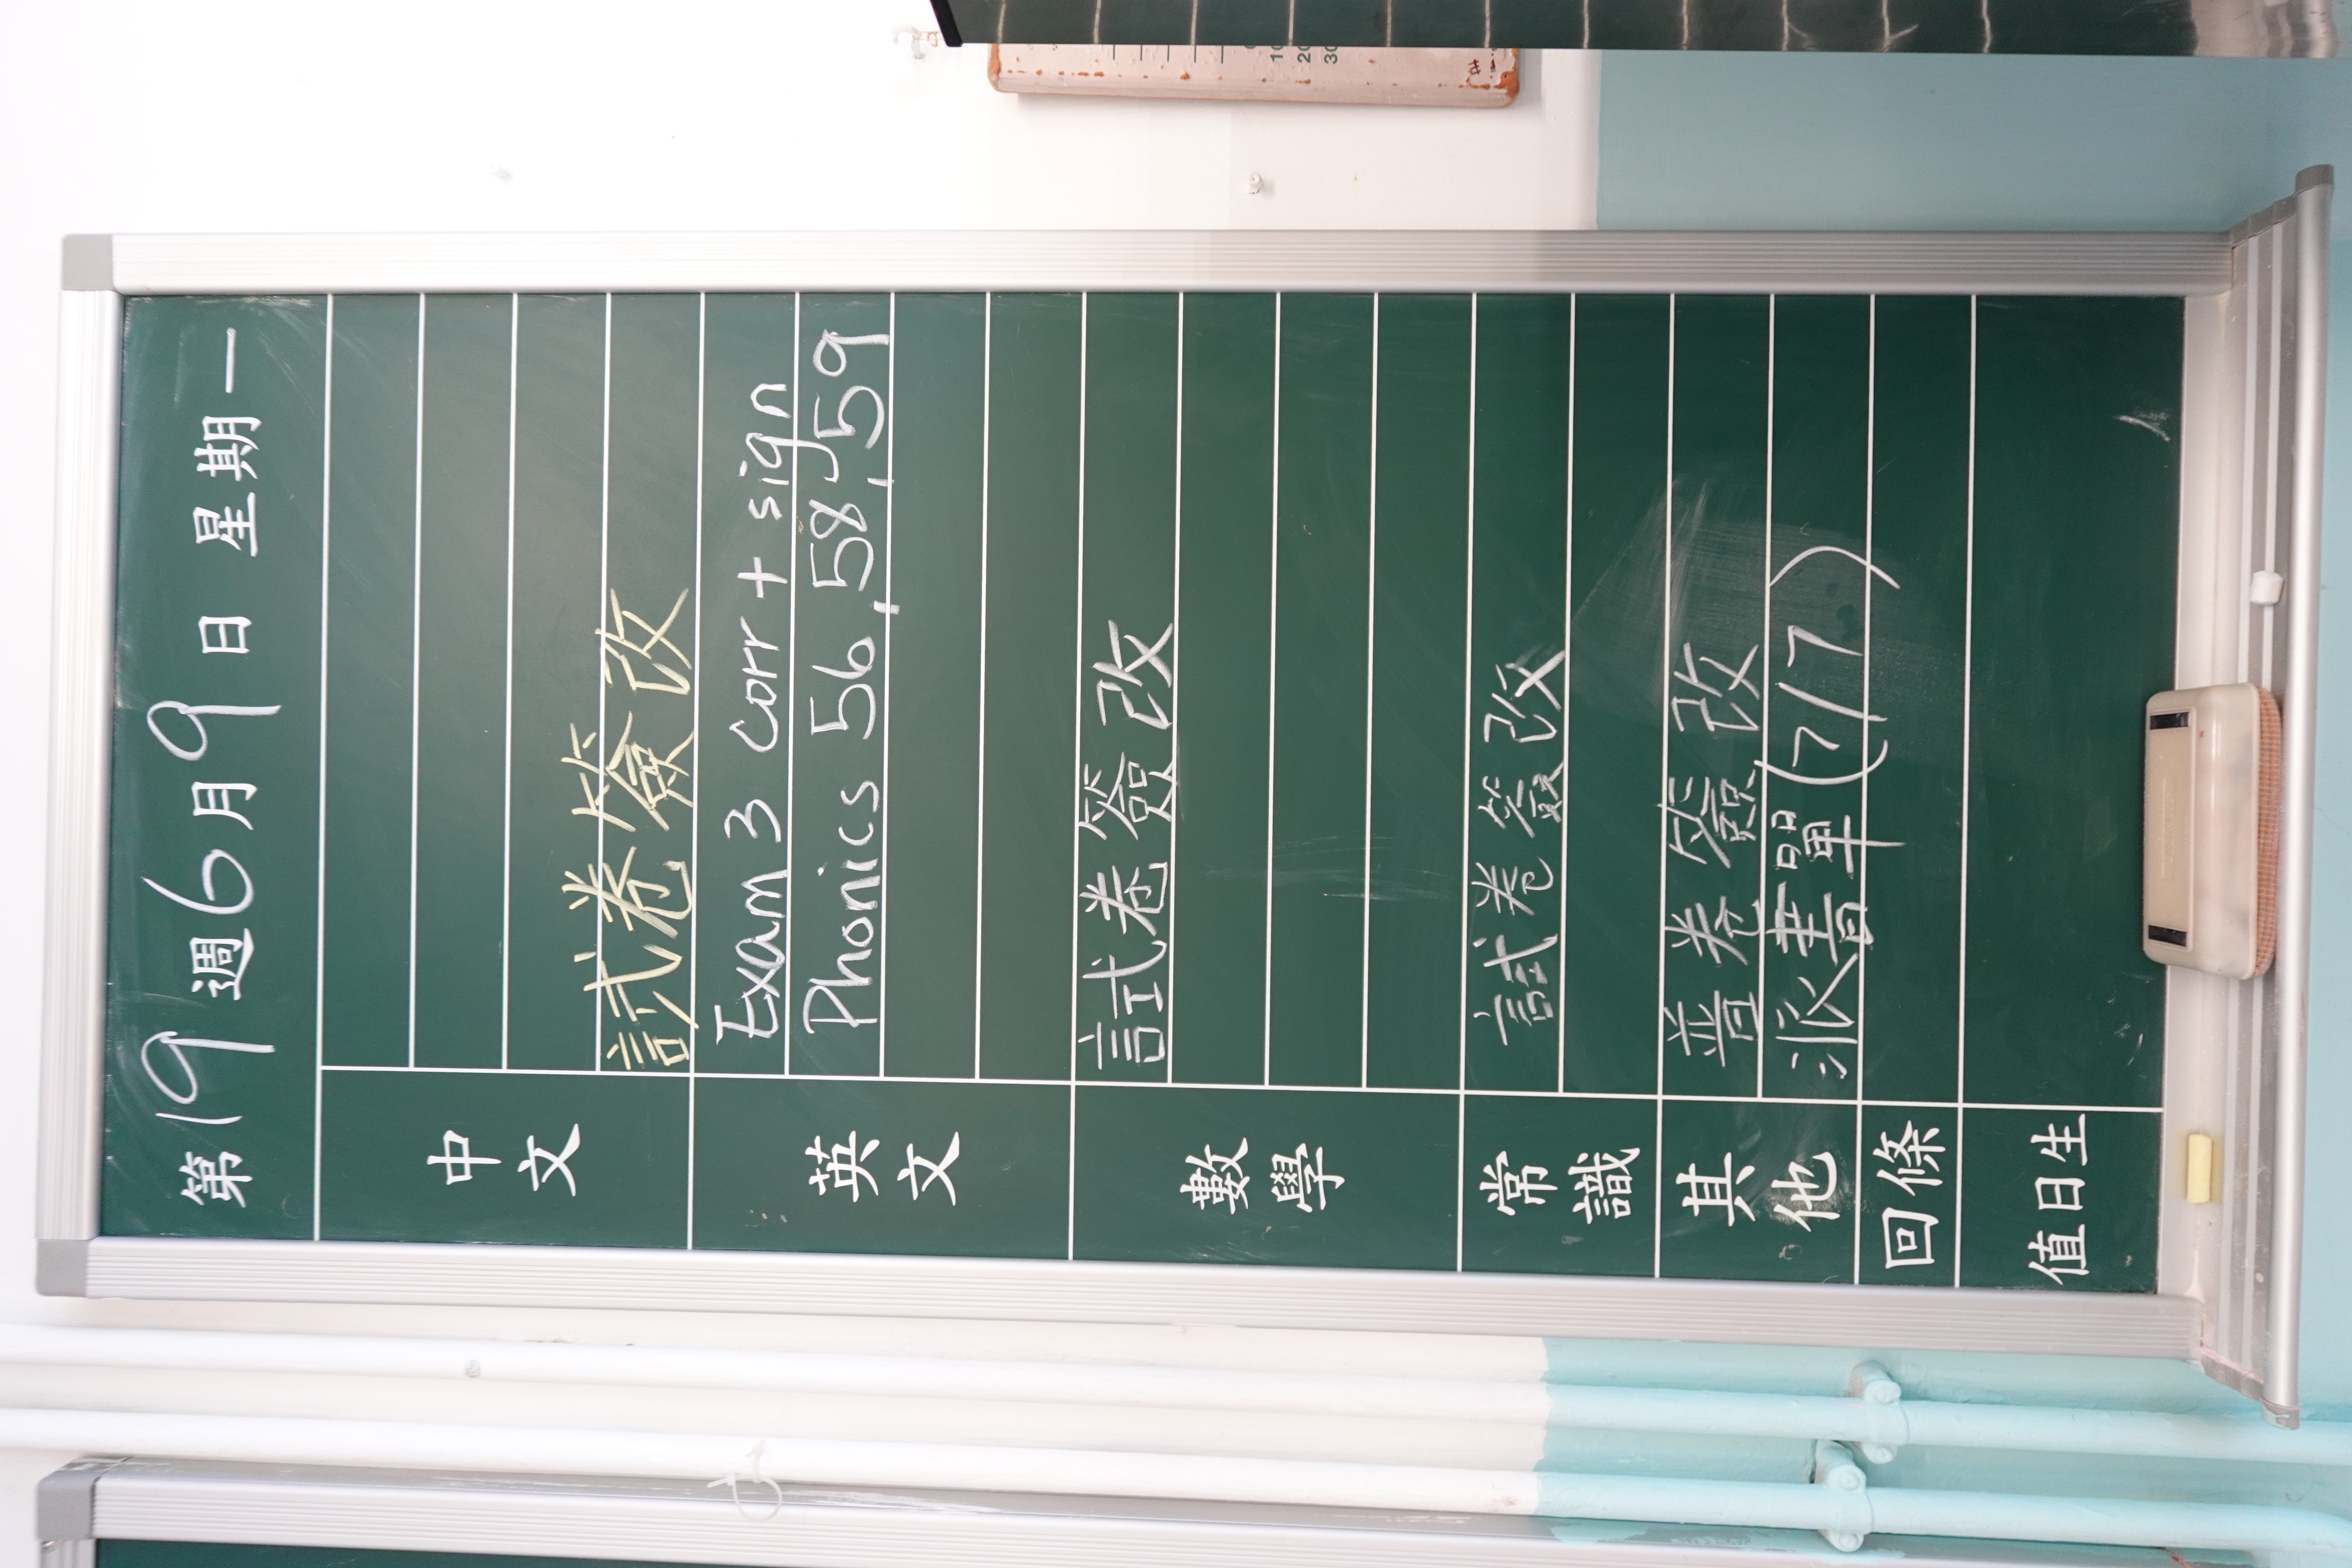 第19週6月9日 星期一
中文
試卷簽改
英文
Exam 3 corr + sign
Phonics 56, 58, 59
數學
試卷簽改
常識
試卷簽改
其他
普卷簽改
派書單(7/7)
回條
值日生
10
20
30